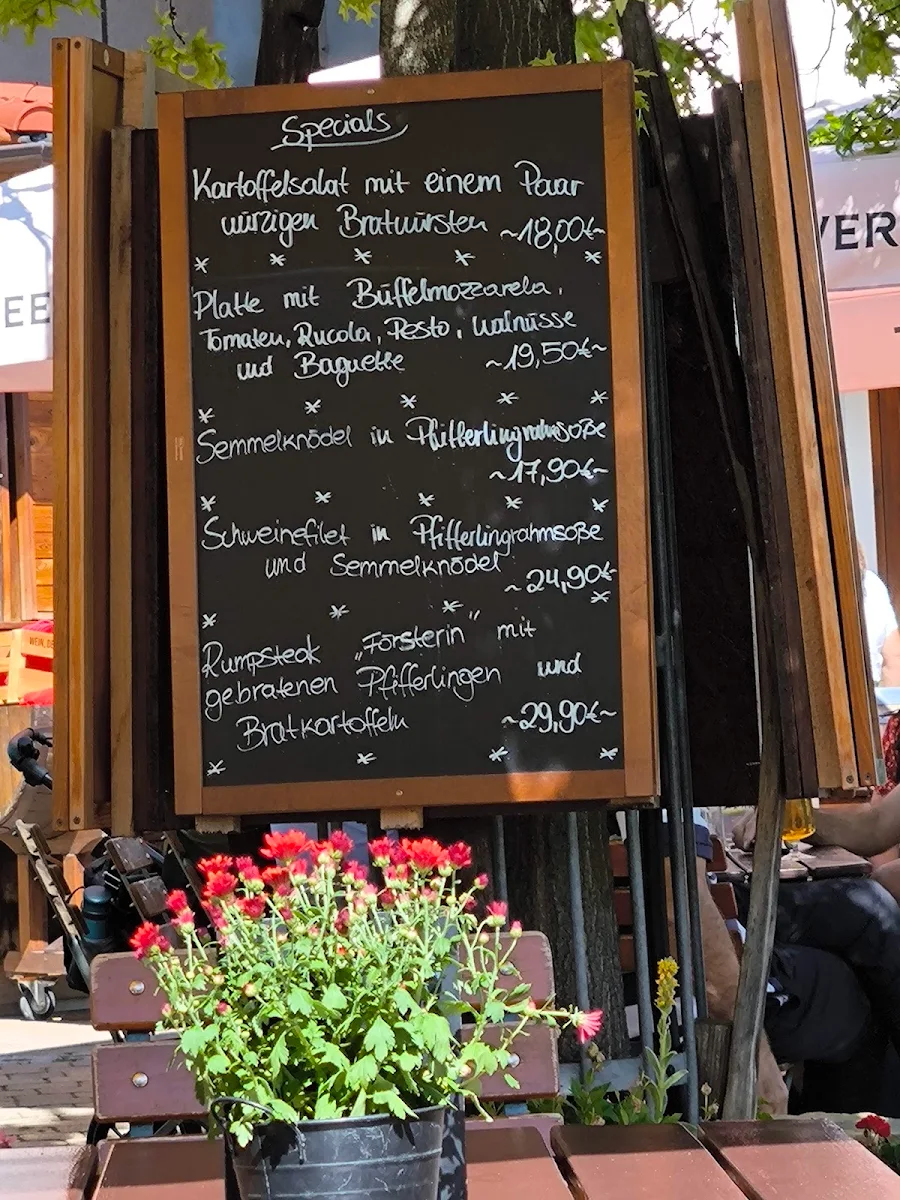 Specials
Kartoffelsalat mit einem Paar
würzigen Bratwürsten ~18,00€~
* * * * *
Platte mit Büffelmozzarela,
Tomaten, Rucola, Pesto, Walnüsse
und Baguette ~19,50€~
* * * * *
Semmelknödel in Pfifferlingrahmsoße
~17,90€~
* * * * *
Schweinefilet in Pfifferlingrahmsoße
und Semmelknödel
~24,90€
* * * *
Rumpsteak „Försterin" mit
gebratenen Pfifferlingen und
Bratkartoffeln ~29,90€~
* * * *
EE
VER